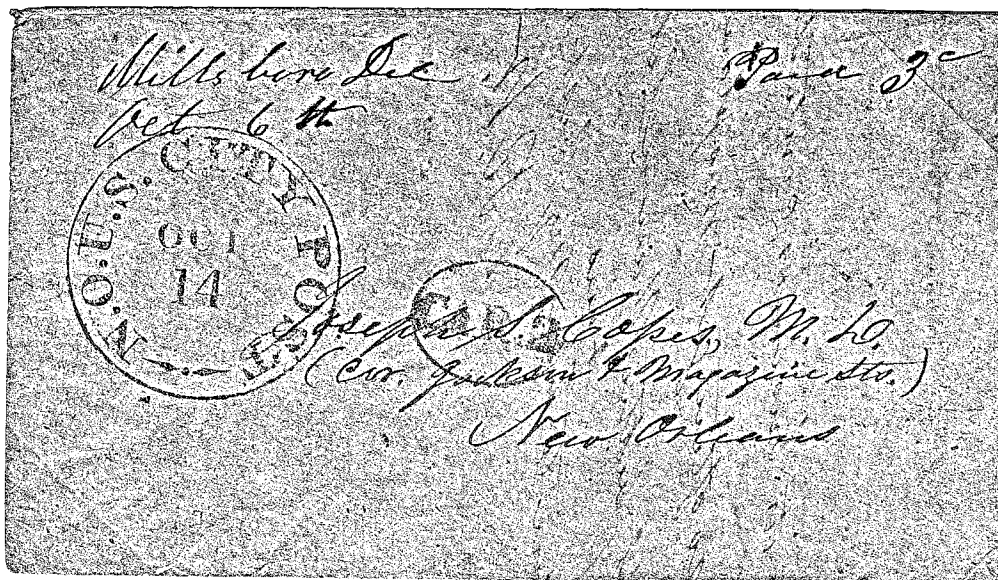 Millsboro Del
Oct 6th
Paid 3c
N.O.U.S. CITY POST
OCT
14
CAR. 2
Joseph S. Copes, M. D.
(Cor. Jackson & Magazine Sts.)
New Orleans